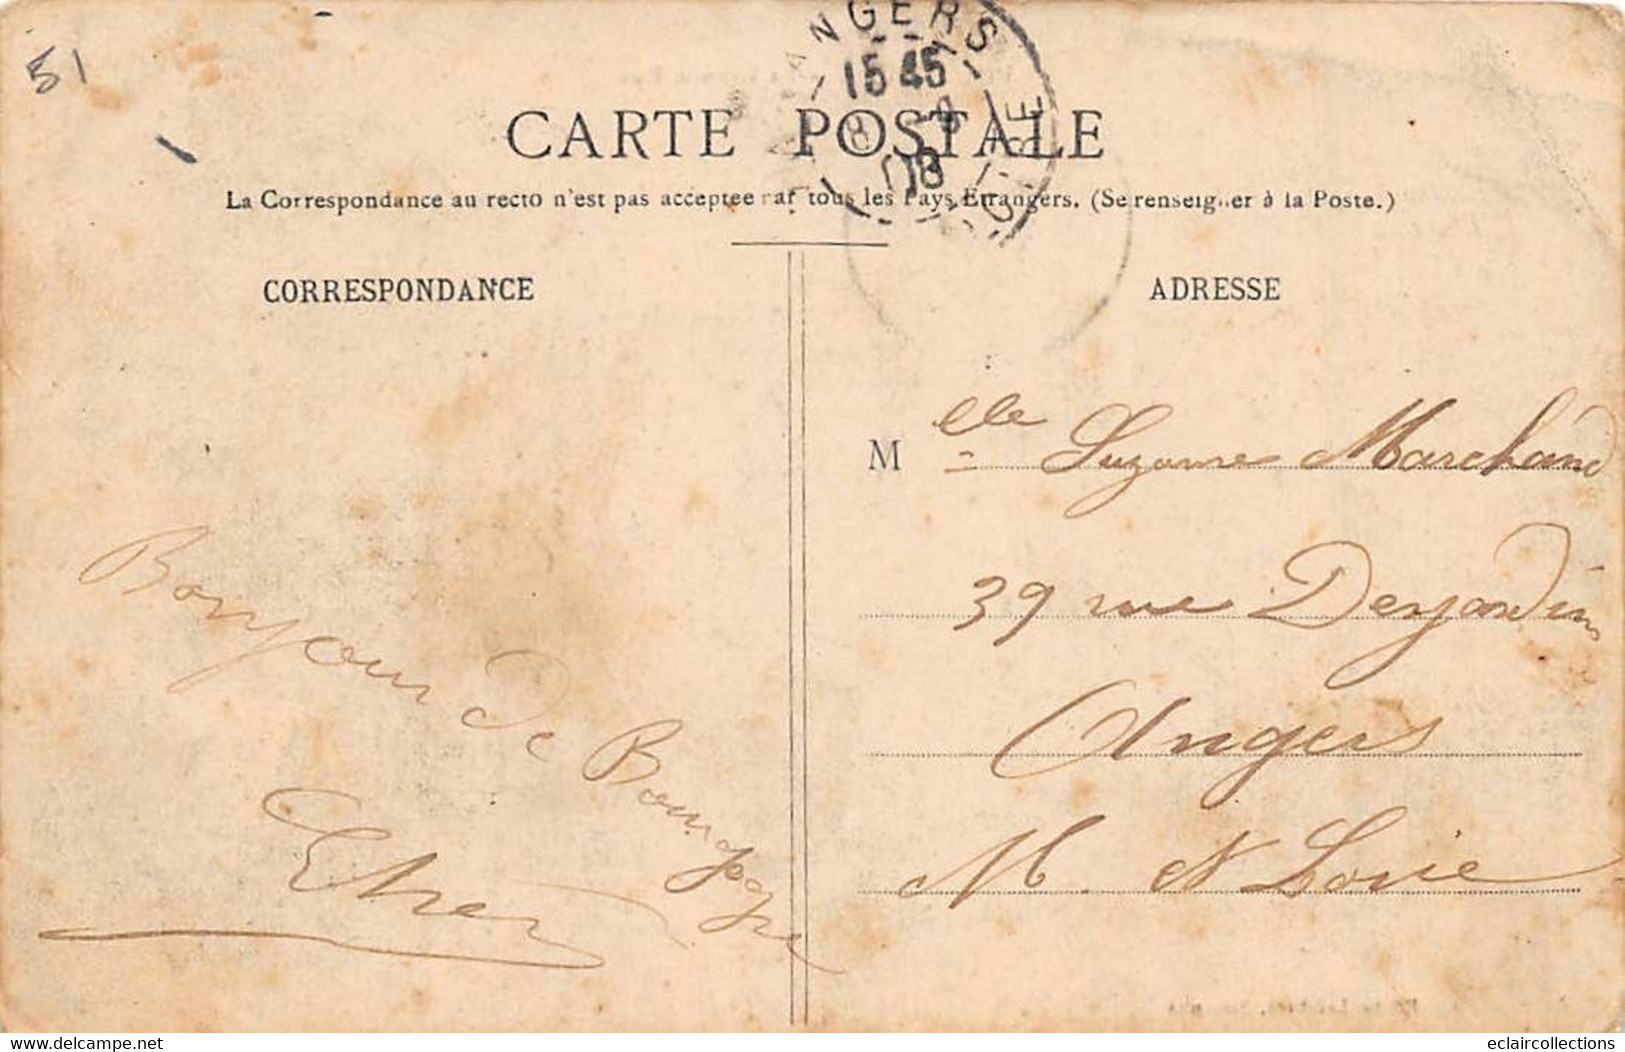 51
ANGERS
15 45
08
CARTE POSTALE
La Correspondance au recto n'est pas acceptee par tous les Pays Etrangers. (Se renseigner à la Poste.)
CORRESPONDANCE
Bonjour de Bourgogne
ADRESSE
M elle Suzanne Marchand
39 rue Desjardins
Angers
M. et Loire
www.delcampe.net
eclaircollections